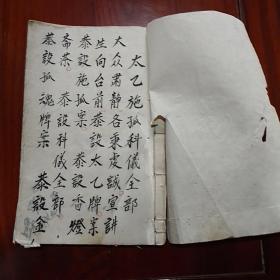 太乙施孤科儀全部
大众肅静各秉虔誠宣訴
生向台前恭設太乙牌案
恭設施孤案 恭設香燈
斋茶 恭設科儀全部
恭設孤魂牌案 恭設金